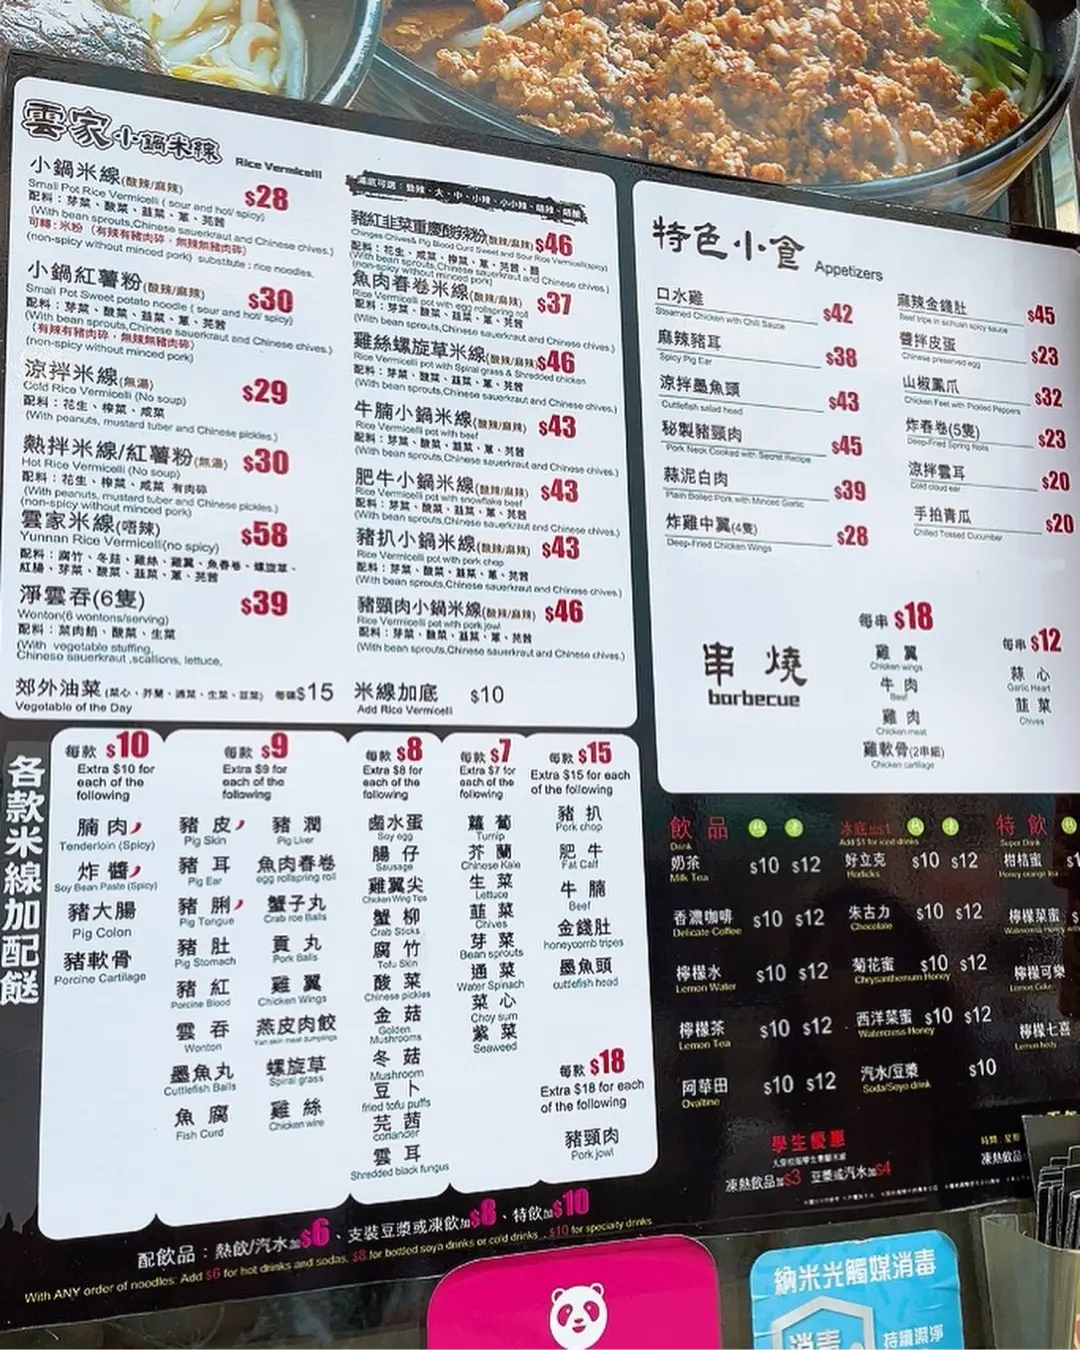 雲家小鍋米線 Rice Vermicelli
小鍋米線(酸辣/麻辣) $28
Small Pot Rice Vermicelli ( sour and hot/ spicy)
配料：芽菜、酸菜、韮菜、蔥、芫茜
(With bean sprouts,Chinese sauerkraut and Chinese chives.)
可轉：米粉（有辣有豬肉碎，無辣無豬肉碎）
(non-spicy without minced pork) substitute : rice noodles.
小鍋紅薯粉(酸辣/麻辣) $30
Small Pot Sweet potato noodle ( sour and hot/ spicy)
配料：芽菜、酸菜、韮菜、蔥、芫茜
(With bean sprouts,Chinese sauerkraut and Chinese chives.)
（有辣有豬肉碎，無辣無豬肉碎）
(non-spicy without minced pork)
涼拌米線(無湯) $29
Cold Rice Vermicelli (No soup)
配料：花生、榨菜、咸菜
(With peanuts, mustard tuber and Chinese pickles.)
熱拌米線/紅薯粉(無湯) $30
Hot Rice Vermicelli (No soup)
配料：花生、榨菜、咸菜 有肉碎
(With peanuts, mustard tuber and Chinese pickles.)
(non-spicy without minced pork)
雲家米線(唔辣) $58
Yunnan Rice Vermicelli(no spicy)
配料：腐竹、冬菇、雞絲、雞翼、魚春卷、螺旋草、
紅腸、芽菜、酸菜、韮菜、蔥、芫茜
淨雲吞(6隻) $39
Wonton(6 wontons/serving)
配料：菜肉餡、酸菜、生菜
(With vegetable stuffing,
Chinese sauerkraut ,scallions, lettuce,
郊外油菜(菜心、芥蘭、通菜、生菜、韮菜) 每碟$15
Vegetable of the Day
豬紅韭菜重慶酸辣粉(酸辣/麻辣) $46
Chinges Chives& Pig Blood Curd Sweet and Sour Rice Vermicelli(spicy)
配料：花生、咸菜、榨菜、蔥、芫茜、醋
(With bean sprouts,Chinese sauerkraut and Chinese chives.)
(non-spicy without minced pork)
魚肉春卷米線(酸辣/麻辣) $37
Rice Vermicelli pot with egg rollspring roll
配料：芽菜、酸菜、韮菜、蔥、芫茜
(With bean sprouts,Chinese sauerkraut and Chinese chives.)
雞絲螺旋草米線(酸辣/麻辣) $46
Rice Vermicelli pot with Spiral grass & Shredded chicken
配料：芽菜、酸菜、韮菜、蔥、芫茜
(With bean sprouts,Chinese sauerkraut and Chinese chives.)
牛腩小鍋米線(酸辣/麻辣) $43
Rice Vermicelli pot with beef
配料：芽菜、酸菜、韮菜、蔥、芫茜
(With bean sprouts,Chinese sauerkraut and Chinese chives.)
肥牛小鍋米線(酸辣/麻辣) $43
Rice Vermicelli pot with snowflake beef
配料：芽菜、酸菜、韮菜、蔥、芫茜
(With bean sprouts,Chinese sauerkraut and Chinese chives.)
豬扒小鍋米線(酸辣/麻辣) $43
Rice Vermicelli pot with pork chop
配料：芽菜、酸菜、韮菜、蔥、芫茜
(With bean sprouts,Chinese sauerkraut and Chinese chives.)
豬頸肉小鍋米線(酸辣/麻辣) $46
Rice Vermicelli pot with pork jowl
配料：芽菜、酸菜、韮菜、蔥、芫茜
(With bean sprouts,Chinese sauerkraut and Chinese chives.)
米線加底 $10
Add Rice Vermicelli
特色小食 Appetizers
口水雞 $42
Steamed Chicken with Chili Sauce
麻辣豬耳 $38
Spicy Pig Ear
涼拌墨魚頭 $43
Cuttlefish salad head
秘製豬頸肉 $45
Pork Neck Cooked with Secret Recipe
蒜泥白肉 $39
Plain Boiled Pork with Minced Garlic
炸雞中翼(4隻) $28
Deep-Fried Chicken Wings
麻辣金錢肚 $45
Beef tripe in sichuan spicy sauce
醬拌皮蛋 $23
Chinese preserved egg
山椒鳳爪 $32
Chicken Feet with Pickled Peppers
炸春卷(5隻) $23
Deep-Fried Spring Rolls
涼拌雲耳 $20
Cold cloud ear
手拍青瓜 $20
Chilled Tossed Cucumber
串燒
barbecue
每串 $18
雞翼
Chicken wings
牛肉
Beef
雞肉
Chicken meat
雞軟骨(2串組)
Chicken cartilage
每串 $12
蒜心
Garlic Heart
韮菜
Chives
各款米線加配餸
每款 $10
Extra $10 for
each of the
following
腩肉
Tenderloin (Spicy)
炸醬
Soy Bean Paste (Spicy)
豬大腸
Pig Colon
豬軟骨
Porcine Cartilage
每款 $9
Extra $9 for
each of the
following
豬皮
Pig Skin
豬耳
Pig Ear
豬脷
Pig Tongue
豬肚
Pig Stomach
豬紅
Porcine Blood
雲吞
Wonton
墨魚丸
Cuttlefish Balls
魚腐
Fish Curd
豬潤
Pig Liver
魚肉春卷
egg rollspring roll
蟹子丸
Crab roe Balls
貢丸
Pork Balls
雞翼
Chicken Wings
燕皮肉餃
Yan skin meat dumplings
螺旋草
Spiral grass
雞絲
Chicken wire
每款 $8
Extra $8 for
each of the
following
鹵水蛋
Soy egg
腸仔
Sausage
雞翼尖
Chicken Wing Tips
蟹柳
Crab Sticks
腐竹
Tofu Skin
酸菜
Chinese pickles
金菇
Golden
Mushrooms
冬菇
Mushroom
豆卜
fried tofu puffs
芫茜
coriander
雲耳
Shredded black fungus
每款 $7
Extra $7 for
each of the
following
蘿蔔
Turnip
芥蘭
Chinese Kale
生菜
Lettuce
韮菜
Chives
芽菜
Bean sprouts
通菜
Water Spinach
菜心
Choy sum
紫菜
Seaweed
每款 $15
Extra $15 for each
of the following
豬扒
Pork chop
肥牛
Fat Calf
牛腩
Beef
金錢肚
honeycomb tripes
墨魚頭
cuttlefish head
每款 $18
Extra $18 for each
of the following
豬頸肉
Pork jowl
飲品 熱 凍
Drink
奶茶 $10 $12
Milk Tea
香濃咖啡 $10 $12
Delicate Coffee
檸檬水 $10 $12
Lemon Water
檸檬茶 $10 $12
Lemon Tea
阿華田 $10 $12
Ovaltine
冰底加$1 熱 凍
Add $1 for iced drinks
好立克 $10 $12
Horlicks
朱古力 $10 $12
Chocolate
菊花蜜 $10 $12
Chrysanthemum Honey
西洋菜蜜 $10 $12
Watercress Honey
汽水/豆漿 $10
Soda/Soya drink
特飲
Super Drink
柑桔蜜
Honey orange tea
檸檬菜蜜
檸檬可樂
Lemon Coke
檸檬七喜
學生優惠
凍熱飲品加$3 豆漿或汽水加$4
配飲品：熱飲/汽水加$6、支裝豆漿或凍飲加$8、特飲加$10
With ANY order of noodles: Add $6 for hot drinks and sodas, $8 for bottled soya drinks or cold drinks , $10 for specialty drinks
納米光觸媒消毒
消毒
持續潔淨